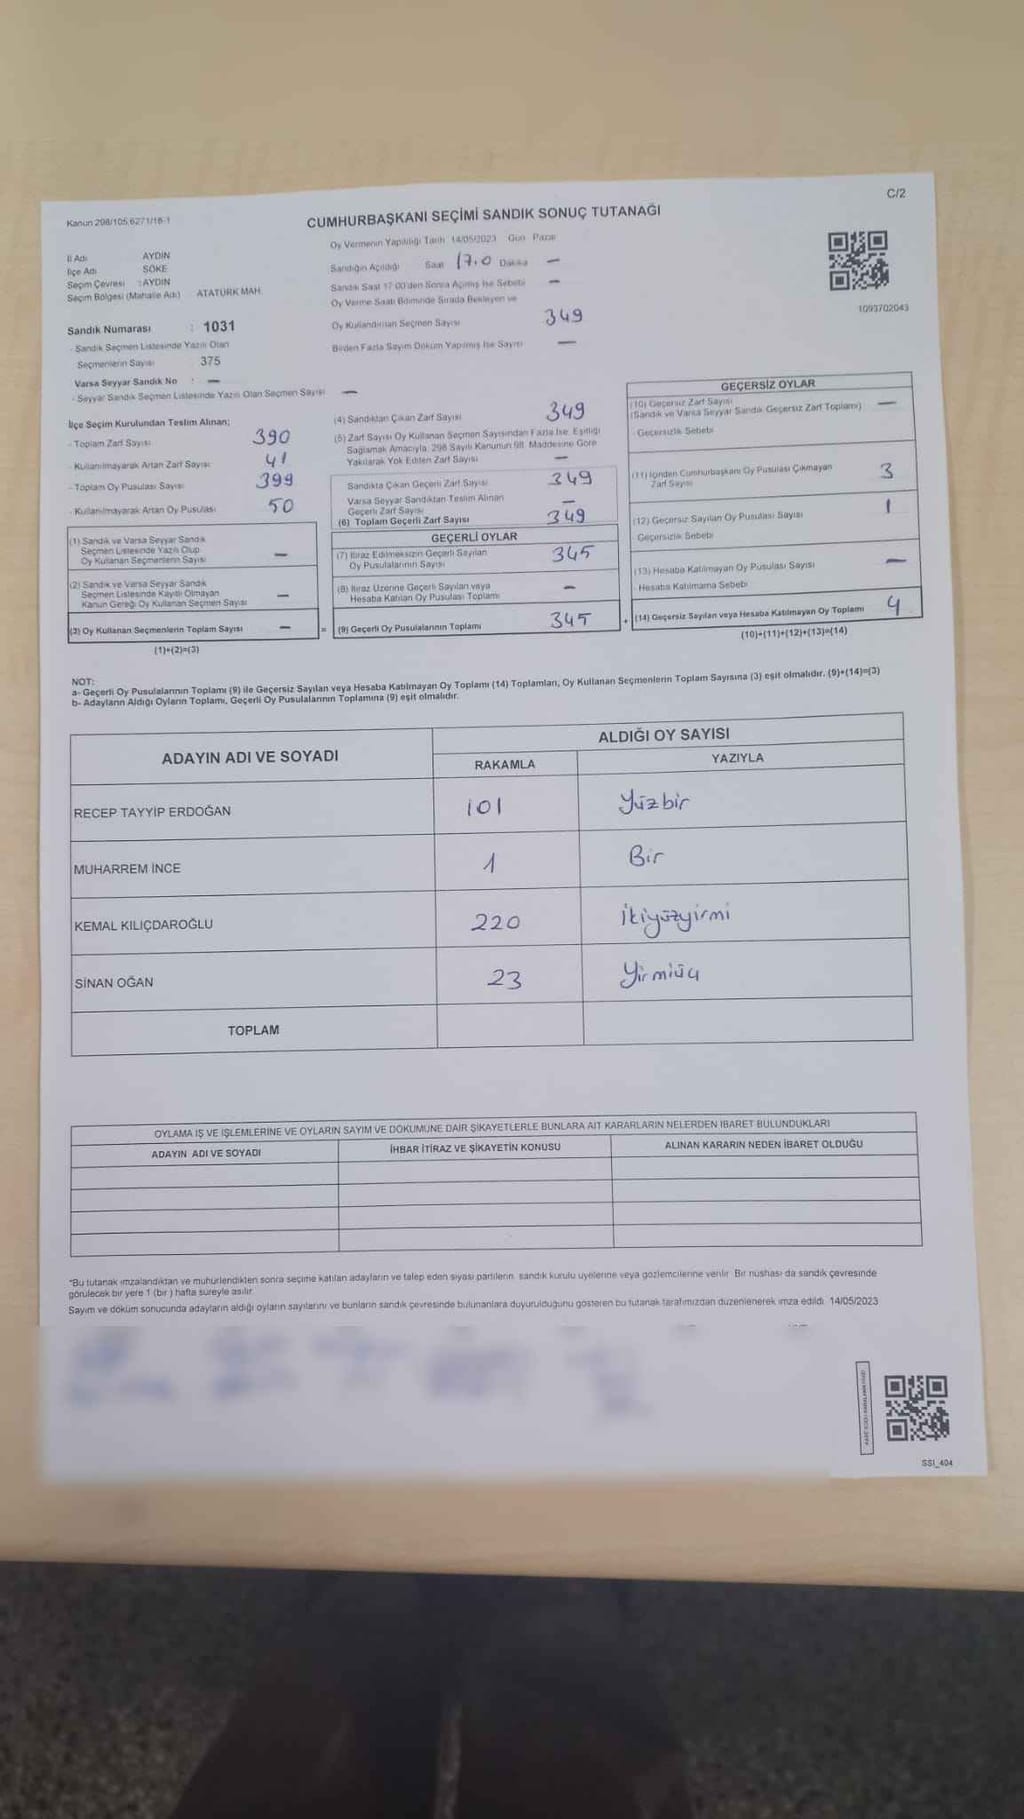 C/2
Kanun 298/105,6271/18-1
CUMHURBAŞKANI SEÇİMİ SANDIK SONUÇ TUTANAĞI
Oy Vermenin Yapıldığı Tarih 14/05/2023 Gün Pazar
İl Adı AYDIN
İlçe Adı SÖKE
Seçim Çevresi : AYDIN
Seçim Bölgesi (Mahalle Adı) ATATÜRK MAH.
Sandık Numarası : 1031
- Sandık Seçmen Listesinde Yazılı Olan
Seçmenlerin Sayısı 375
Varsa Seyyar Sandık No : —
- Seyyar Sandık Seçmen Listesinde Yazılı Olan Seçmen Sayısı —
Sandığın Açıldığı Saat 17.0 Dakika —
Sandık Saat 17:00'den Sonra Açılmış İse Sebebi —
Oy Verme Saati Bitiminde Sırada Bekleyen ve
Oy Kullandırılan Seçmen Sayısı 349
Birden Fazla Sayım Döküm Yapılmış İse Sayısı —
1093702043
İlçe Seçim Kurulundan Teslim Alınan;
- Toplam Zarf Sayısı 390
- Kullanılmayarak Artan Zarf Sayısı 41
- Toplam Oy Pusulası Sayısı 399
- Kullanılmayarak Artan Oy Pusulası 50
(1) Sandık ve Varsa Seyyar Sandık
Seçmen Listesinde Yazılı Olup
Oy Kullanan Seçmenlerin Sayısı —
(2) Sandık ve Varsa Seyyar Sandık
Seçmen Listesinde Kayıtlı Olmayan
Kanun Gereği Oy Kullanan Seçmen Sayısı —
(3) Oy Kullanan Seçmenlerin Toplam Sayısı — =
(1)+(2)=(3)
(4) Sandıktan Çıkan Zarf Sayısı 349
(5) Zarf Sayısı Oy Kullanan Seçmen Sayısından Fazla İse, Eşitliği
Sağlamak Amacıyla, 298 Sayılı Kanunun 98. Maddesine Göre
Yakılarak Yok Edilen Zarf Sayısı —
Sandıkta Çıkan Geçerli Zarf Sayısı 349
Varsa Seyyar Sandıktan Teslim Alınan
Geçerli Zarf Sayısı —
(6) Toplam Geçerli Zarf Sayısı 349
GEÇERLİ OYLAR
(7) İtiraz Edilmeksizin Geçerli Sayılan
Oy Pusulalarının Sayısı 345
(8) İtiraz Üzerine Geçerli Sayılan veya
Hesaba Katılan Oy Pusulası Toplamı —
(9) Geçerli Oy Pusulalarının Toplamı 345 +
GEÇERSİZ OYLAR
(10) Geçersiz Zarf Sayısı —
(Sandık ve Varsa Seyyar Sandık Geçersiz Zarf Toplamı)
Geçersizlik Sebebi
(11) İçinden Cumhurbaşkanı Oy Pusulası Çıkmayan
Zarf Sayısı 3
(12) Geçersiz Sayılan Oy Pusulası Sayısı 1
Geçersizlik Sebebi
(13) Hesaba Katılmayan Oy Pusulası Sayısı —
Hesaba Katılmama Sebebi
(14) Geçersiz Sayılan veya Hesaba Katılmayan Oy Toplamı 4
(10)+(11)+(12)+(13)=(14)
NOT:
a- Geçerli Oy Pusulalarının Toplamı (9) ile Geçersiz Sayılan veya Hesaba Katılmayan Oy Toplamı (14) Toplamları, Oy Kullanan Seçmenlerin Toplam Sayısına (3) eşit olmalıdır. (9)+(14)=(3)
b- Adayların Aldığı Oyların Toplamı, Geçerli Oy Pusulalarının Toplamına (9) eşit olmalıdır.
ADAYIN ADI VE SOYADI ALDIĞI OY SAYISI
RAKAMLA YAZIYLA
RECEP TAYYİP ERDOĞAN 101 Yüzbir
MUHARREM İNCE 1 Bir
KEMAL KILIÇDAROĞLU 220 İkiyüzyirmi
SİNAN OĞAN 23 Yirmiüç
TOPLAM
OYLAMA İŞ VE İŞLEMLERİNE VE OYLARIN SAYIM VE DÖKÜMÜNE DAİR ŞİKAYETLERLE BUNLARA AİT KARARLARIN NELERDEN İBARET BULUNDUKLARI
ADAYIN ADI VE SOYADI İHBAR İTİRAZ VE ŞİKAYETİN KONUSU ALINAN KARARIN NEDEN İBARET OLDUĞU
*Bu tutanak imzalandıktan ve mühürlendikten sonra seçime katılan adayların ve talep eden siyasi partilerin sandık kurulu üyelerine veya gözlemcilerine verilir. Bir nüshası da sandık çevresinde
görülecek bir yere 1 (bir ) hafta süreyle asılır.
Sayım ve döküm sonucunda adayların aldığı oyların sayılarını ve bunların sandık çevresinde bulunanlara duyurulduğunu gösteren bu tutanak tarafımızdan düzenlenerek imza edildi. 14/05/2023
SSI_404